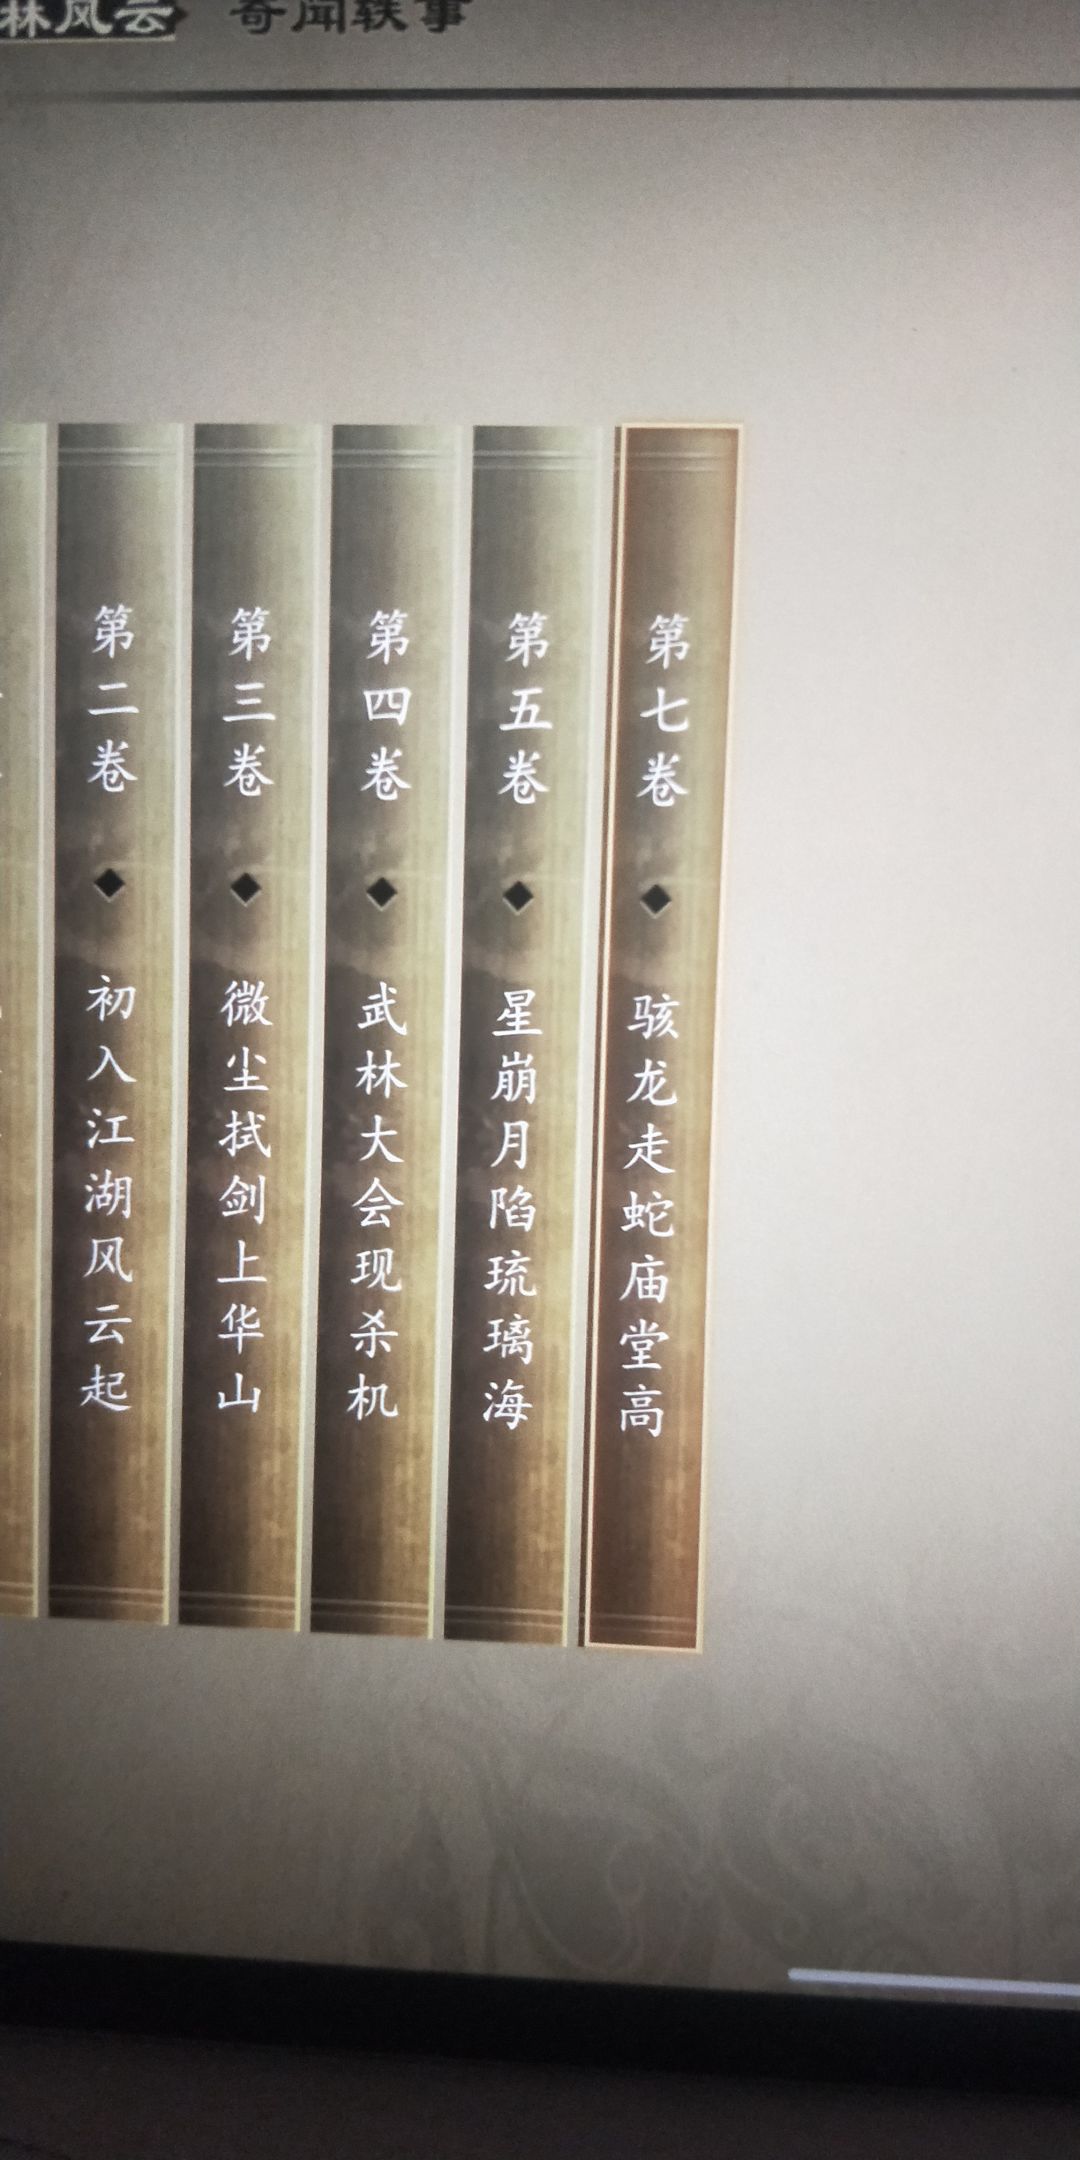 林风云
奇闻轶事
第二卷◆初入江湖风云起
第三卷◆微尘拭剑上华山
第四卷◆武林大会现杀机
第五卷◆星崩月陷琉璃海
第七卷◆骇龙走蛇庙堂高